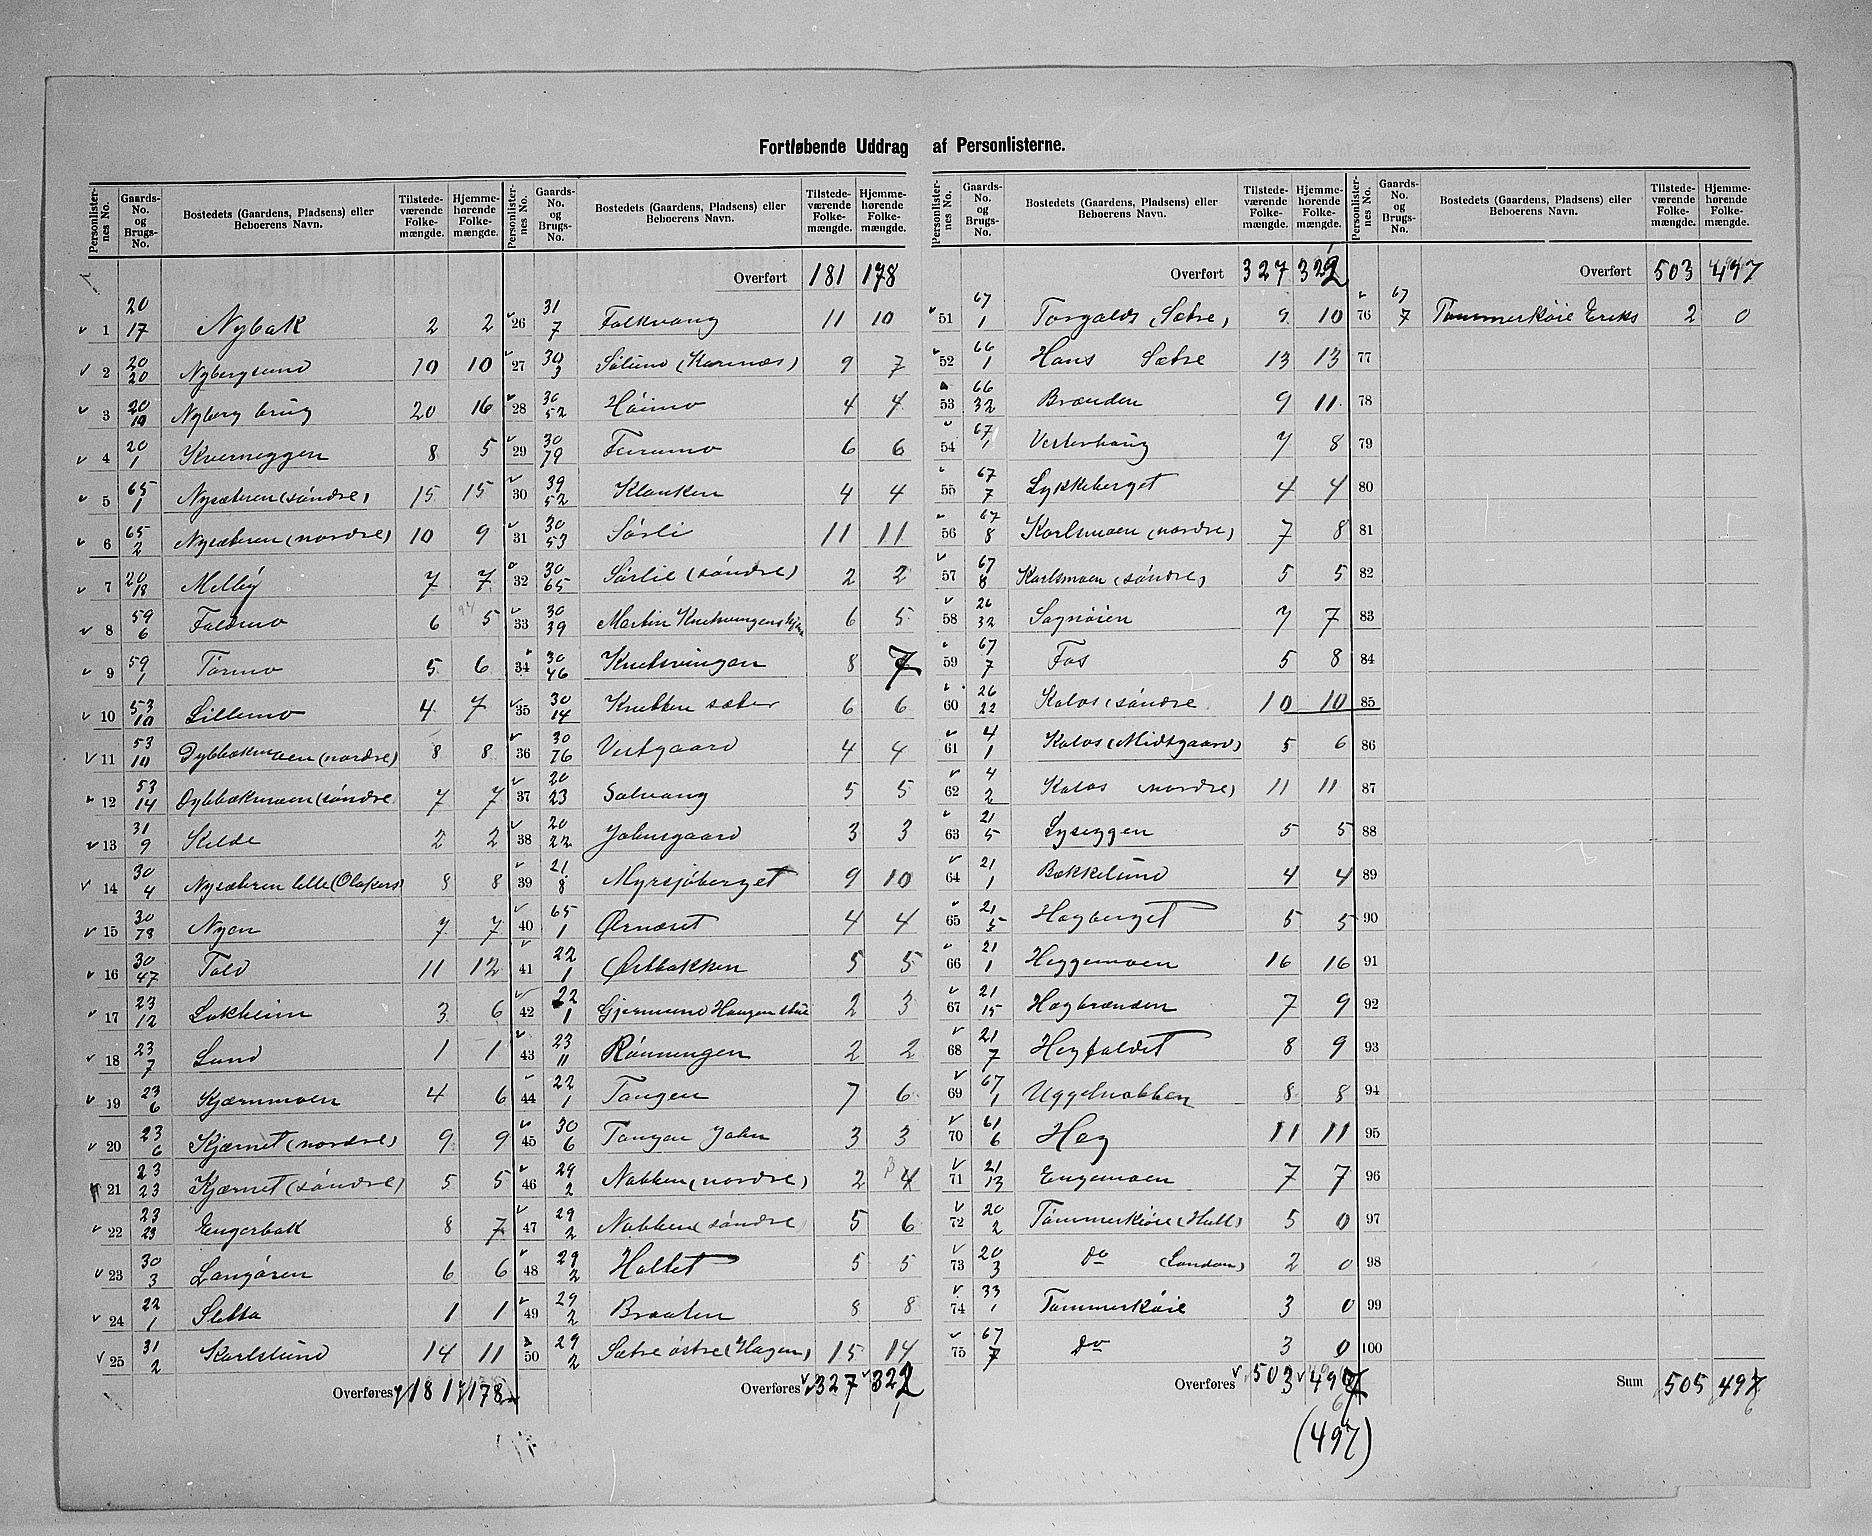 Fortløbende Uddrag af Personlisterne.
Personlister-nes No. | Gaards-No. og Brugs-No. | Bostedets (Gaardens, Pladsens) eller Beboerens Navn. | Tilstede-værende Folke-mængde. | Hjemme-hørende Folke-mængde.
1 | 20/17 | Nybak | 2 | 2
2 | 20/20 | Nybergsund | 10 | 10
3 | 20/19 | Nyberg brug | 20 | 16
4 | 20/1 | Kverneggen | 8 | 5
5 | 65/1 | Nysæteren (søndre) | 15 | 15
6 | 65/2 | Nysæteren (nordre) | 10 | 9
7 | 20/18 | Melby | 7 | 7
8 | 59/6 | Faldmo | 6 | 5
9 | 59/1 | Tørmo | 5 | 6
10 | 53/10 | Lillemo | 4 | 7
11 | 53/10 | Dybbækmoen (nordre) | 8 | 8
12 | 53/14 | Dybbækmoen (søndre | 7 | 7
13 | 31/9 | Kilde | 2 | 2
14 | 30/4 | Nysæteren lille (Olakers) | 8 | 8
15 | 30/78 | Nyen | 7 | 7
16 | 30/47 | Told | 11 | 12
17 | 23/12 | Lokheim | 3 | 6
18 | 23/7 | Lund | 1 | 1
19 | 23/6 | Kjærnmoen | 4 | 6
20 | 23/6 | Kjærnet (nordre) | 9 | 9
21 | 23/23 | Kjærnet (søndre) | 5 | 5
22 | 23/23 | Engerbak | 8 | 7
23 | 30/3 | Langøren | 6 | 6
24 | 22/1 | Sletta | 1 | 1
25 | 31/2 | Karlslund | 14 | 11
Overføres 181 178
Personlister-nes No. | Gaards-No. og Brugs-No. | Bostedets (Gaardens, Pladsens) eller Beboerens Navn. | Tilstede-værende Folke-mængde. | Hjemme-hørende Folke-mængde.
Overført 181 178
26 | 31/7 | Folkvang | 11 | 10
27 | 30/3 | Sølund (Karnæs) | 9 | 7
28 | 30/52 | Høimo | 4 | 4
29 | 30/79 | Furumo | 6 | 6
30 | 39/52 | Klanken | 4 | 4
31 | 30/53 | Sørli | 11 | 11
32 | 30/65 | Sørlie (søndre) | 2 | 2
33 | 30/39 | Martin | 6 | 5
34 | 30/46 | Knutsvingen | 8 | 7
35 | 30/14 | Knutten sæter | 6 | 6
36 | 30/76 | Vestgaard | 4 | 4
37 | 20/23 | Solvang | 5 | 5
38 | 20/22 | Johnsgaard | 3 | 3
39 | 21/8 | Myrsjøberget | 9 | 10
40 | 65/1 | Ørnæset | 4 | 4
41 | 22/1 | Østbakken | 5 | 5
42 | 22/1 | Gjermund Haugen stue | 2 | 3
43 | 23/11 | Rønningen | 2 | 2
44 | 22/1 | Tangen | 7 | 6
45 | 30/6 | Tangen John | 3 | 3
46 | 29/2 | Nabben (nordre) | 2 | 4
47 | 29/2 | Nabben (søndre | 5 | 6
48 | 29/2 | Holtet | 5 | 5
49 | 29/2 | Braaten | 8 | 8
50 | 29/2 | Sætre østre (Hagen) | 15 | 14
Overføres 327 322
1
Personlister-nes No. | Gaards-No. og Brugs-No. | Bostedets (Gaardens, Pladsens) eller Beboerens Navn. | Tilstede-værende Folke-mængde. | Hjemme-hørende Folke-mængde.
Overført 327 322
51 | 67/1 | Torgalds (Sætre) | 9 | 10
52 | 66/1 | Hans Sætre | 13 | 13
53 | 66/32 | Brænden | 9 | 11
54 | 67/1 | Vesterhaug | 7 | 8
55 | 67/7 | Lykkeberget | 4 | 4
56 | 67/8 | Karlsmoen (nordre) | 7 | 8
57 | 67/8 | Karlsmoen (søndre) | 5 | 5
58 | 26/32 | Sagnøien | 7 | 7
59 | 67/7 | Fos | 5 | 8
60 | 26/22 | Kolos (søndre | 10 | 10
61 | 4/1 | Kolos (Midtgaard) | 5 | 6
62 | 4/2 | Kolos nordre) | 11 | 11
63 | 21/5 | Lyseggen | 5 | 5
64 | 21/1 | Bakkelund | 4 | 4
65 | 21/5 | Hegberget | 5 | 5
66 | 21/1 | Heggemoen | 16 | 16
67 | 21/15 | Hegbrænden | 7 | 9
68 | 21/7 | Hegfaldet | 8 | 9
69 | 67/1 | Uggelnabben | 8 | 8
70 | 61/6 | Heg | 11 | 11
71 | 21/13 | Engemoen | 7 | 7
72 | 20/2 | Tømmerkøie (Hull) | 5 | 0
73 | 20/3 | do (London) | 2 | 0
74 | 33/1 | Tømmerkøie | 3 | 0
75 | 67/7 | do | 3 | 0
Overføres 503 497
6
(497)
Personlister-nes No. | Gaards-No. og Brugs-No. | Bostedets (Gaardens, Pladsens) eller Beboerens Navn. | Tilstede-værende Folke-mængde. | Hjemme-hørende Folke-mængde.
Overført 503 497
76 | 67/7 | Tømmerkøie Eriks | 2 | 0
77
78
79
80
81
82
83
84
85
86
87
88
89
90
91
92
93
94
95
96
97
98
99
100
Sum 505 497
6